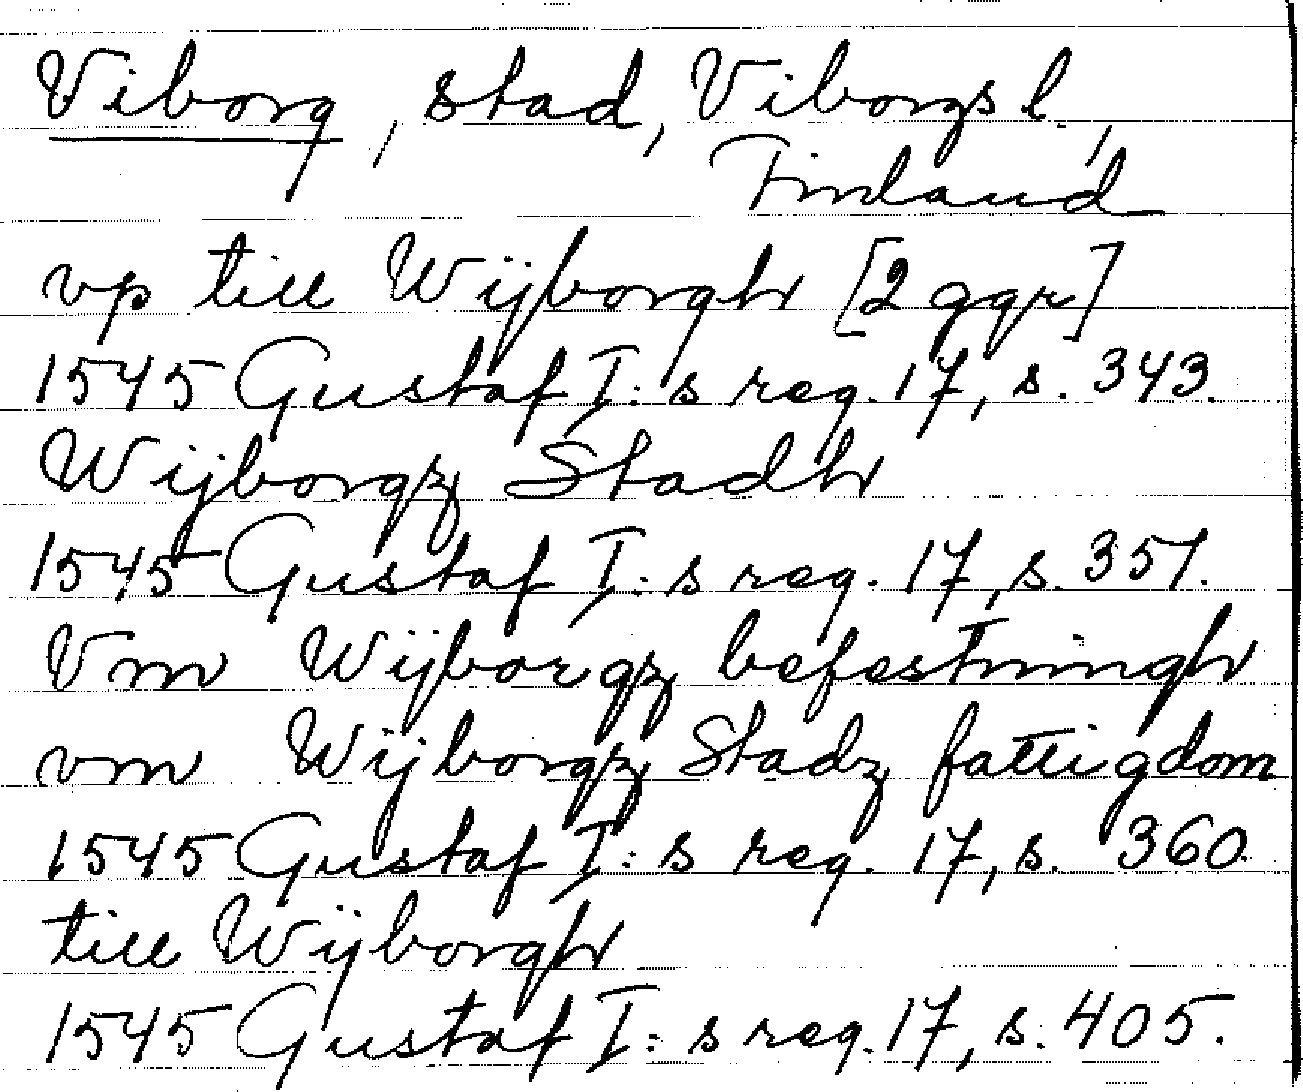 Viborg, stad, Viborgs l.,
Finland
vp till Wijborgh [2 ggr]
1545 Gustaf I:s reg. 17, s. 343.
Wijborgz Stadh
1545 Gustaf I:s reg. 17, s. 351.
Vm Wijborgz befestningh
vm Wijborgz Stadz fattigdom
1545 Gustaf I:s reg. 17, s. 360
till Wijborgh
1545 Gustaf I:s reg. 17, s. 405.